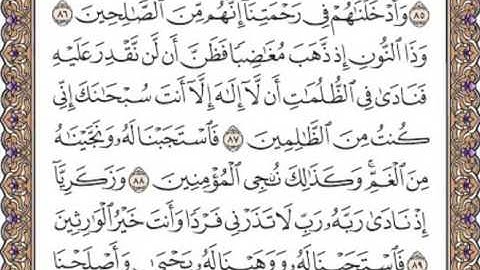 ٨٥ وَأَدْخَلْنَاهُمْ فِي رَحْمَتِنَا إِنَّهُم مِّنَ الصَّالِحِينَ ٨٦
وَذَا النُّونِ إِذ ذَّهَبَ مُغَاضِبًا فَظَنَّ أَن لَّن نَّقْدِرَ عَلَيْهِ
فَنَادَىٰ فِي الظُّلُمَاتِ أَن لَّا إِلَٰهَ إِلَّا أَنتَ سُبْحَانَكَ إِنِّي
كُنتُ مِنَ الظَّالِمِينَ ٨٧ فَاسْتَجَبْنَا لَهُ وَنَجَّيْنَاهُ
مِنَ الْغَمِّ ۚ وَكَذَٰلِكَ نُنجِي الْمُؤْمِنِينَ ٨٨ وَزَكَرِيَّا
إِذْ نَادَىٰ رَبَّهُ رَبِّ لَا تَذَرْنِي فَرْدًا وَأَنتَ خَيْرُ الْوَارِثِينَ
٨٩ فَاسْتَجَبْنَا لَهُ وَوَهَبْنَا لَهُ يَحْيَىٰ وَأَصْلَحْنَا